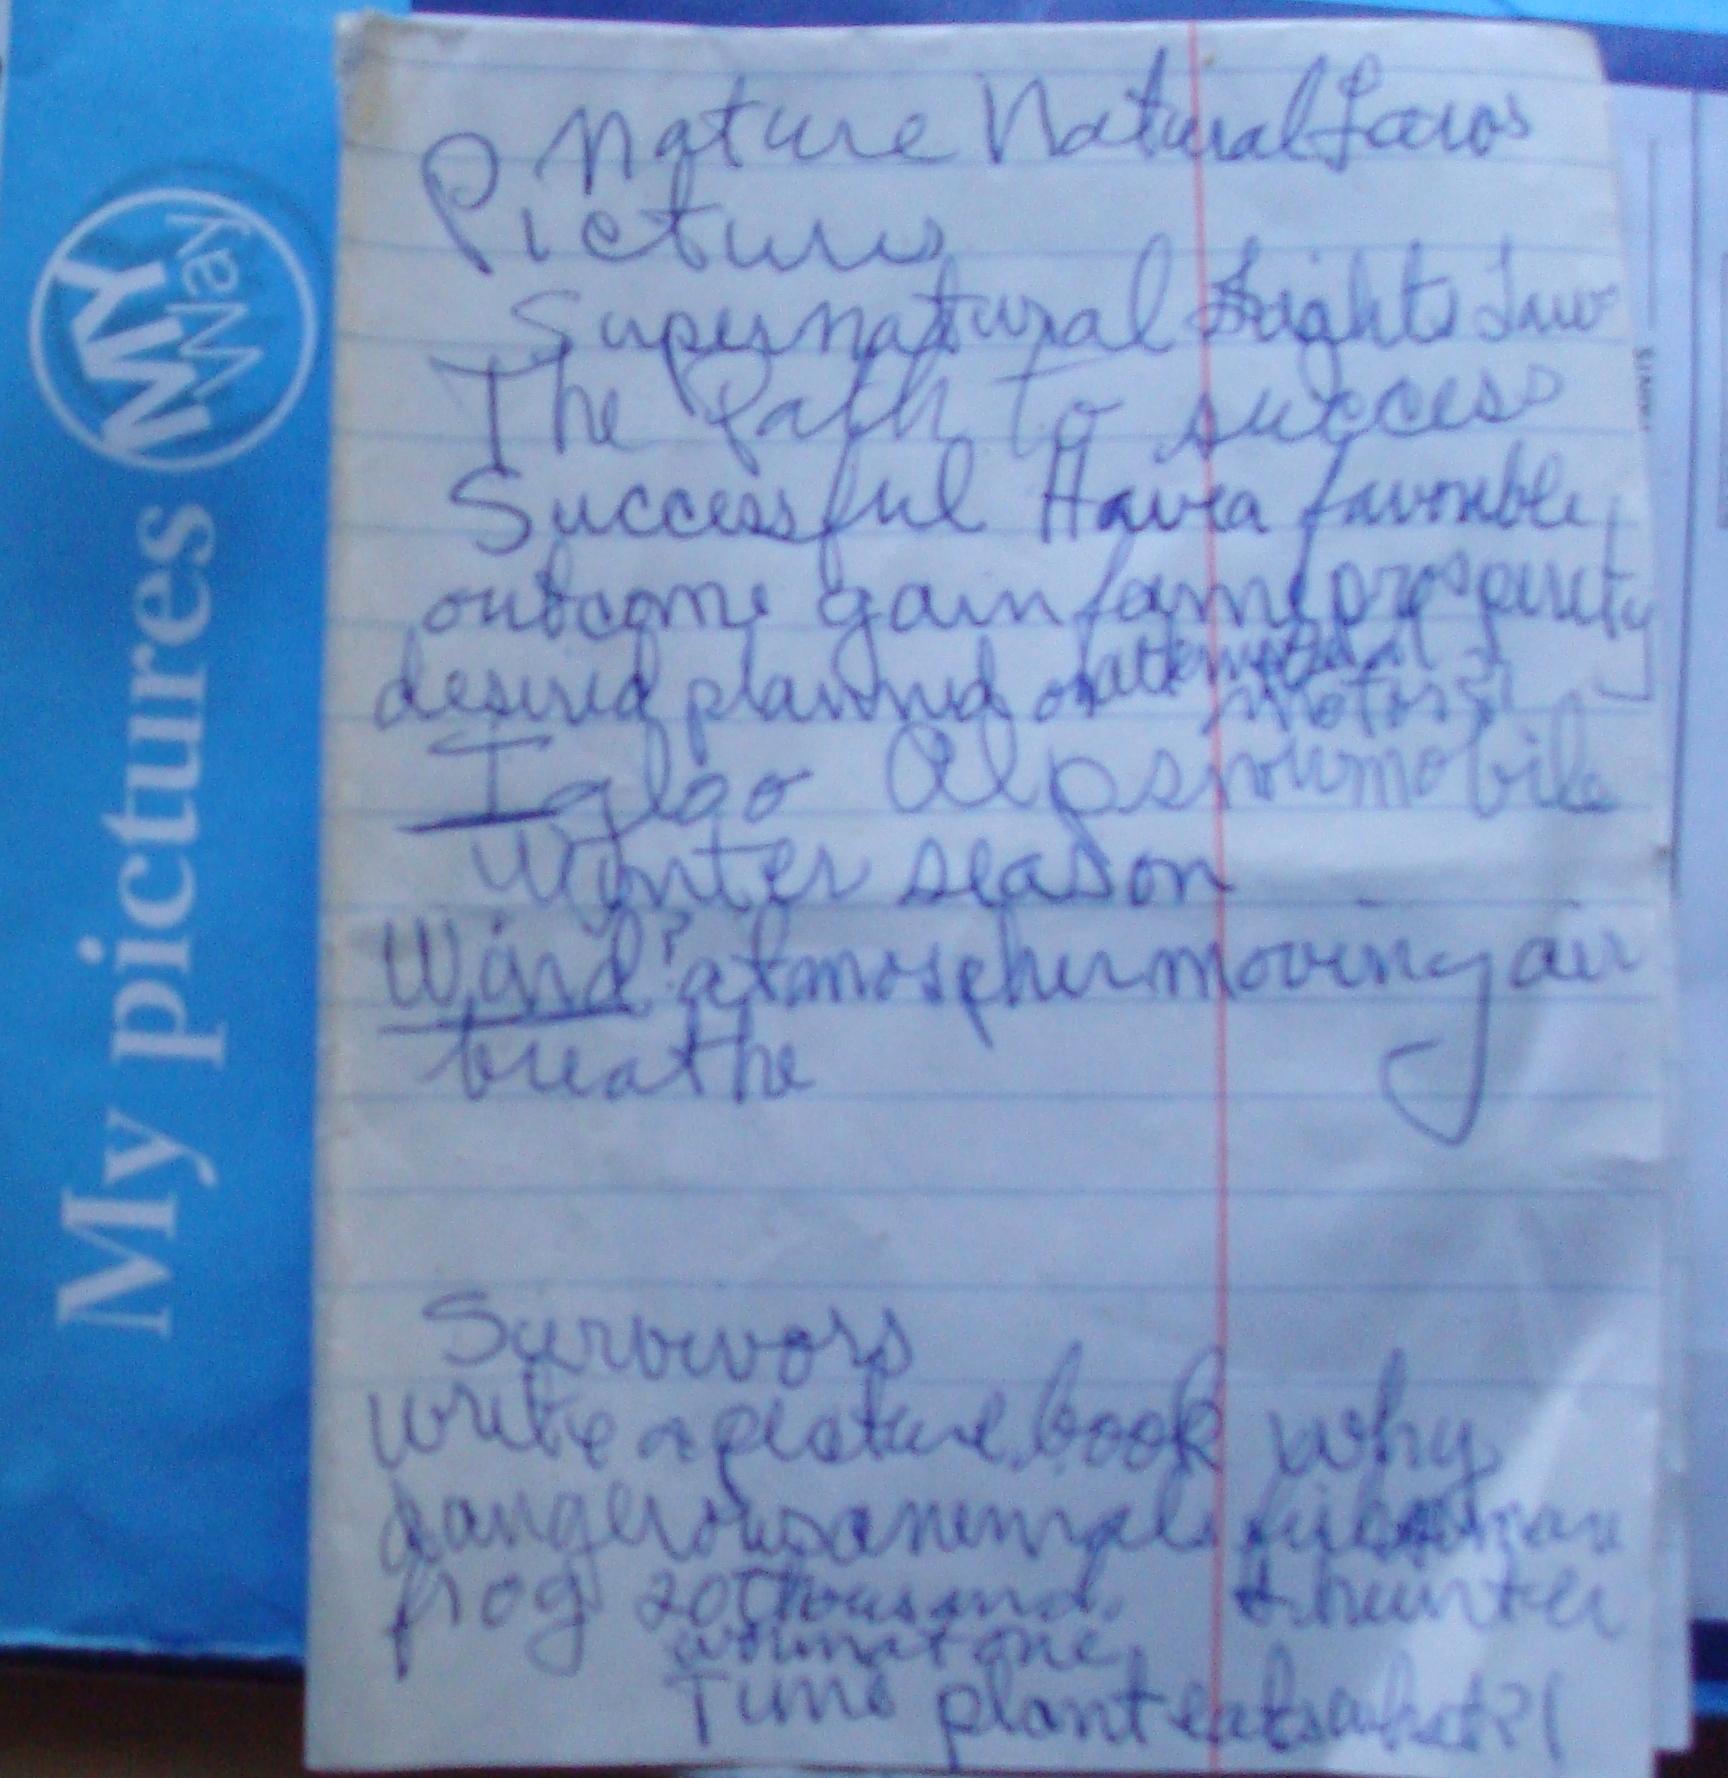 Nature Natural Laws
Pictures
Supernatural Lights Law
The Path To success
Successful Have a favorble
outcome gain fame prosperity
desired planned or attempted
motors
Igloo Alp snowmobile
Winter season
Wind? atmospher moving air
breathe
Survivors
write a picture book why
dangerous animals
frog 20 Thousand & hunter
at one
Time plant eats what?!
My pictures
MY Way